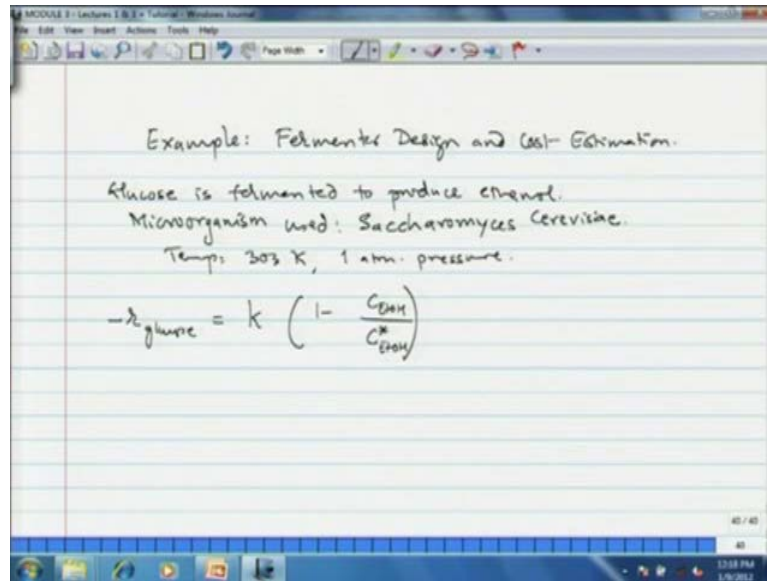 MODULE 3 - Lectures 1 & 3 + Tutorial - Windows Journal
File Edit View Insert Actions Tools Help
Page Width
Example: Fermenter Design and Cost Estimation.
Glucose is fermented to produce ethanol.
Microorganism used: Saccharomyces Cerevisiae.
Temp: 303 K, 1 atm. pressure.
-r glucose = k ( 1- C EtOH / C* EtOH )
40 / 40
40
12:18 PM
1/9/2012